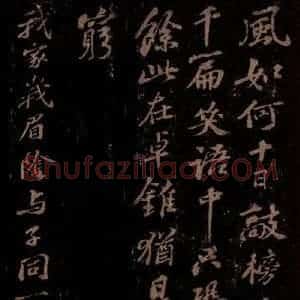 風如何十日敲榜
千篇笑語中只
餘此在卓錐猶
窮
我家峩眉陰与子同一
Shufaziliao.COM